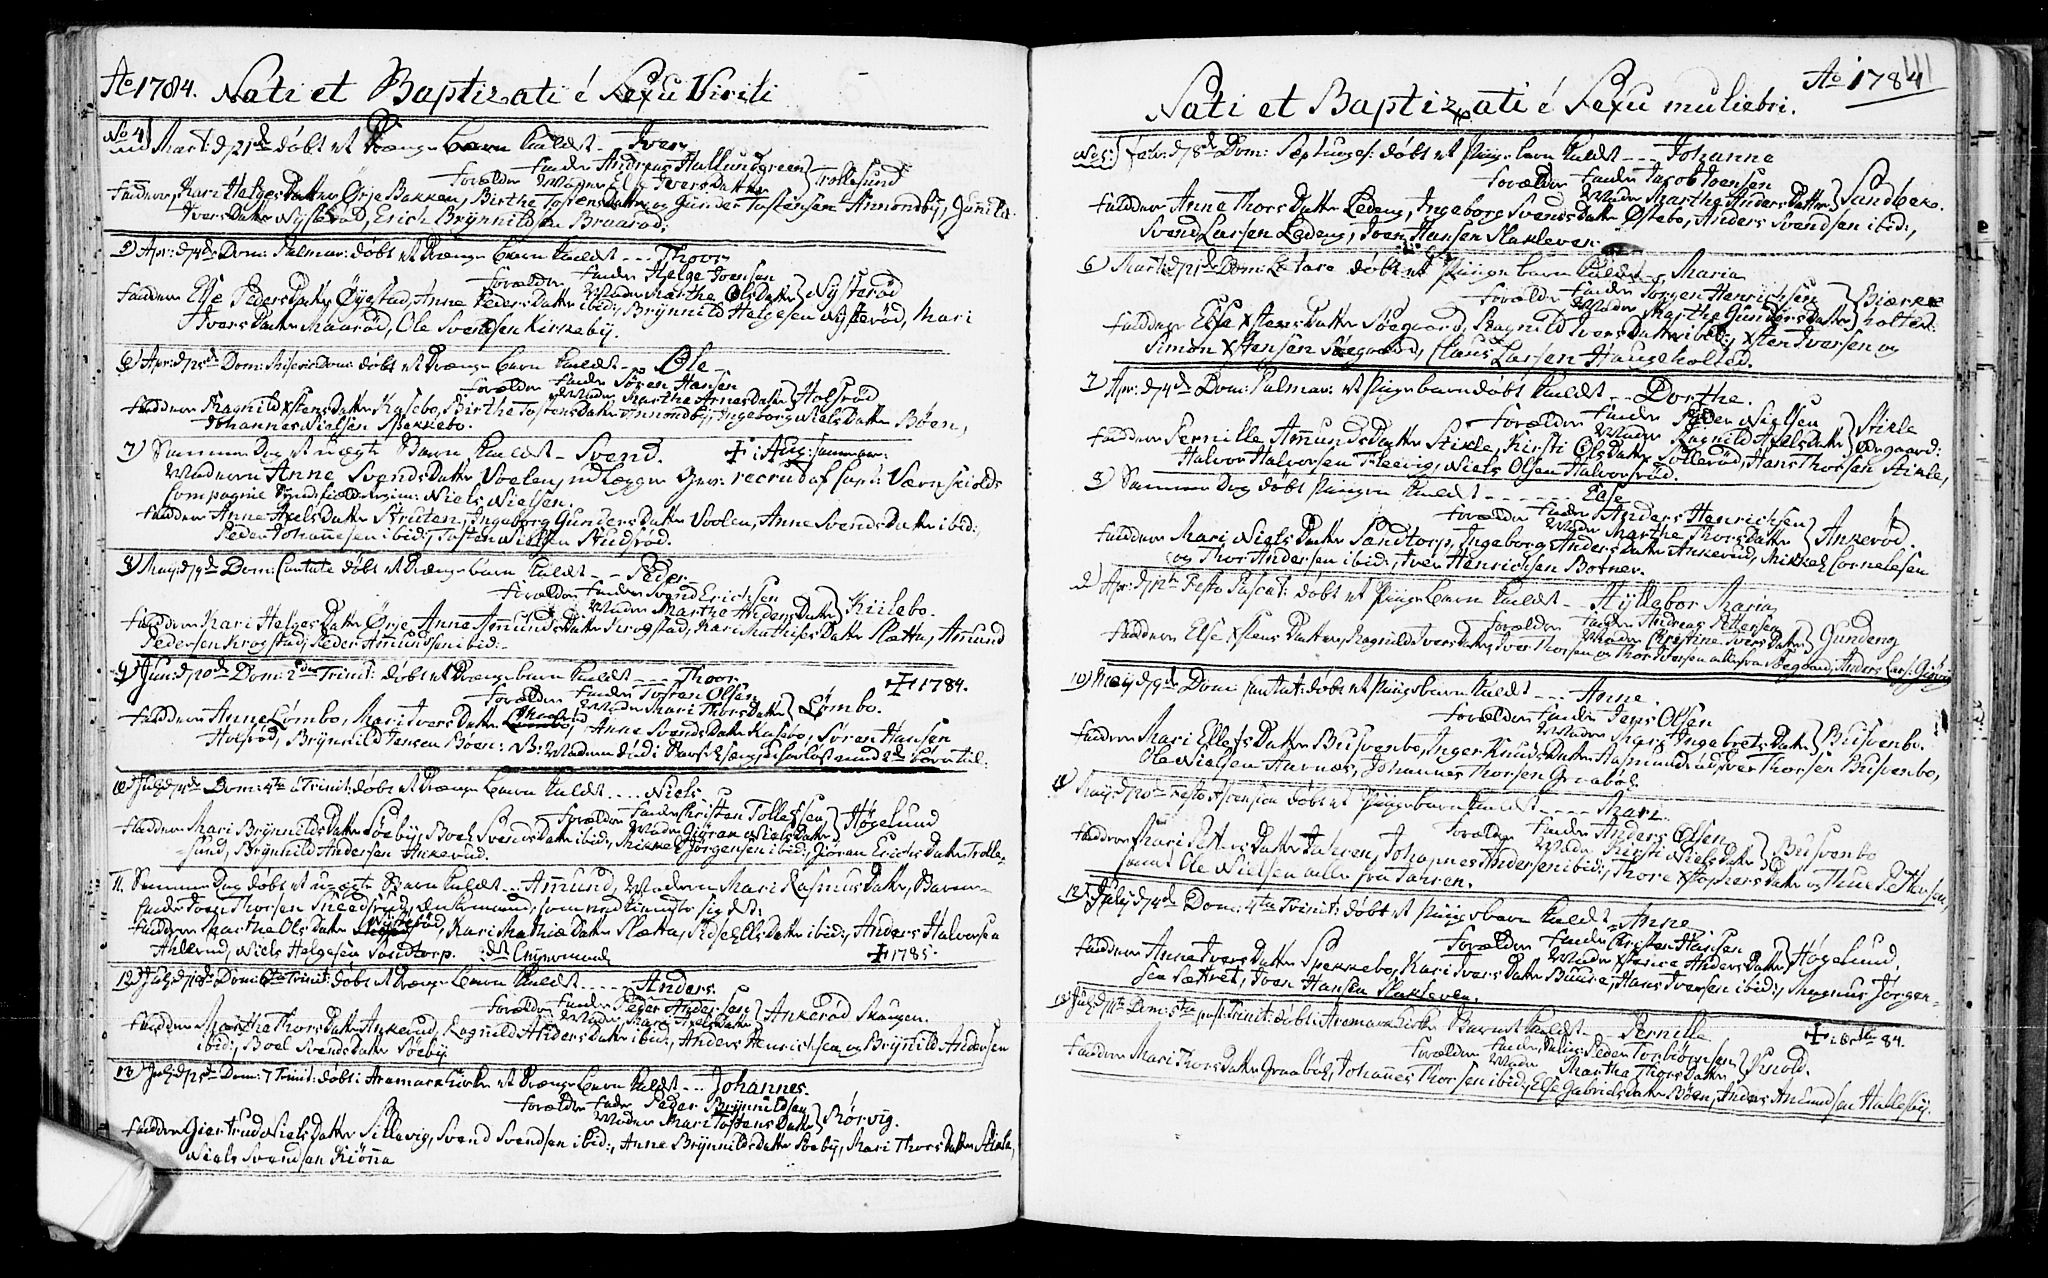 Ao 1784. Nati et Baptizati é Sexu Virili
No 4) Mart: d 21de døbt et Drænge barn kaldt - Iver
Forældre Fader Andreas Hallundgreen Moder Else IversDatter } Trollesund
Faddere, Kari HelgesDatter Ørje Bakken, Birthe TostensDatter og Gunder Tostensen Ammondbÿ, Gunild
IversDatter Nÿsterød, Erich Brÿnnildsen Braarød.
5) Apr: d 4de Dom: Palmar: døbt et Drænge barn kaldt - - - Thoer
Forældre Fader Helge Joensen Moder Marthe OlsDatter } Nÿsterød
Faddere Else PedersDatter Øÿgstad, Anne PedersDatter ibid:, Brÿnnild Helgesen Nÿsterød, Mari
IversDatter Maarud, Ole Svendsen Kirkebÿ.
6) Apr: d 25de Dom: Miseric: Dom: døbt et Drænge barn kaldt - - Ole -
Forældre Fader Sören Hansen Moder Marthe ArnesDatter } Holsrød
Faddere Ragnild XstensDatter Kasebo, Birthe TostensDatter Ammondbÿ, Ingeborg NielsDatter Böen,
Johannes Nielsen Spekkebo.
7) Samme Dag et uægte Barn kaldt - Svend. + : Aug: sam: aar:
Moderen Anne SvendsDatter Voelen, udlegger Gev: recrud af Capt: Værnskiolds
Compagnie Niels Nielsen.
Faddere Anne AxelsDatter Struten, Ingeborg GundersDatter Voolen, Anne SvendsDatter ibid:,
Peder Johannesen ibid:, Tosten Nielsen Studsrød.
8) Maÿ: d 9de Dom: Cantate døbt et Drænge barn kaldt - - Peder
Forældre Fader Svend Erichsen Moder Marthe AndersDatter } Kiilebo.
Faddere Kari HelgesDatter Ørje, Anne AmundsDatter Krogstad, Kari MathisesDatter Slætta, Amund
Pedersen Krogstad, Peder Amundsen ibid: -
9) Jun: d 20de Dom: 2den Trinit: døbt et Drænge barn kaldt - - - Thoer. + 1784.
Forældre Fader Tosten Olsen Moder Mari ThorsDatter } Lømbo.
Faddere Anne Lømbo, Mari IversDatter Maarud, Anne SvendsDatter Kasebo, Sören Hansen
Holsrød, Brÿnnild Jensen Böen: NB: Moderen død i Barselseng, uforløst med 2de börn til.
10) Julÿ d 4de Dom: 4te a Trinit: døbt et Drænge barn kaldt - - - - Niels
Forældre Fader Christen Tollefsen Moder Giöran NielsDatter } Högelund
Faddere Mari BrÿnnildsDatter Söebÿ, Boel SvendsDatter ibid:, Mikkel Jörgensen ibid:, Jöran ErichsDatter Trolle-
sund, Brÿnnild Andersen Ankerud.
11. Samme Dag døbt et uægte Barn kaldt - - - Amund, Moderen Mari RasmusDatter, Barne-
fader Joen Thorsen Sneedsrud, Enkemand, som vedkiendte sig det.
Faddere Marthe OlsDatter Nÿsterød, Kari MathiæDatter Slætta, Sidse ElsDatter ibid:, Anders Halvorsen
Ahlerud, Niels Helgesen Sandtorp. + 1785.
12) Julÿ d 18de Dom: 6te Trinit: døbt et Drænge barn kaldt - - - - - Anders.
Forældre Fader Peder Andersen Moder Mari AxelsDatter } Ankerød Skougen.
Faddere Marthe ThorsDatter Ankerud, Ragnild AndersDatter ibid:, Anders Henrichsen og Brÿnild Andersen
ibid:, Boel SvendsDatter Söebÿ
13) Julÿ d 25de Dom: 7 Trinit: døbt i Aremark Kirke et Drænge barn kaldt - - - Johannes.
Forældre Fader Peder Brÿnnildsen Moder Mari TostensDatter } Börvig.
Faddere Giertrud NielsDatter Sillevig, Svend Svendsen ibid:, Anne BrÿnnildsDatter Söebÿ, Mari ThorsDatter Stikle,
Niels Svendsen Kiönna
111
Nati et Baptizati é Sexu muliebri. Ao 1784
No 5) Febr: d 8de Dom: Septuages: døbt et Pige barn kaldt - - - Johanne
Forældre Fader Jacob Joensen Moder Marthe AndersDatter } Sandbek.
Faddere Anne ThorsDatter Ledeng, Ingeborg SvendsDatter Östebo, Anders Svendsen ibid:,
Svend Larsen Ledeng, Iver Hansen Slakleven.
6) Mart: d 21de Dom: Lætare døbt et Pige barn kaldt - - Maria
Forældre Fader Jörgen Henrichsen Moder Marthe GundersDatter } Biærke holted.
Faddere Else XstensDatter Söegaard, Ragnild IversDatter ibid:, Xsten Iversen og
Simon XStensen Söegaard, Claus Larsen Haugeholted.
7) Apr: d 4de Dom: Palmar: et Pige barn døbt kaldt - - Dorthe.
Forældre Fader Peder Nielsen Moder Ragnild AxelsDatter } Stikle Ødegaard:
Faddere Pernille AmundsDatter Stikle, Kirsti OlsDatter Sollerød, Hans Thorsen Stikle,
Halvor Halvorsen Fleevig, Niels Olsen Halvorsrød.
8) Samme Dag døbt Pigen kaldt - - - - - - Else
Forældre Fader Anders Henrichsen Moder Marthe ThorsDatter } Ankerød.
Faddere Mari NielsDatter Sandtorp, Ingeborg AndersDatter Ankerud, Mikkel Cornelesen
og Thor Andersen ibid:, Iver Henrichsen Botner.
9) Apr: d 12te Festo Pascat: døbt et Pige barn kaldt - Hÿllebor Maria
Forældre Fader Andreas Pettersen Moder Christine IversDatter } Gundeng
Faddere Else XstensDatter, Ragnild IversDatter, Iver Thorsen og Thor Iversen alle fra Söegaard, Anders Lars:
10) Maÿ d 9de Dom: Cantat: døbt et Pige barn kaldt - - - Anne.
Forældre Fader Jens Olsen Moder Mari IngebretsDatter } Busvenbo.
Faddere Mari EllefsDatter Busvenbo, Inger KnudsDatter Hasmundrød, Iver Thorsen Busvenbo,
Ole Nielsen Aarnæs, Johannes Thorsen Graaböl.
11) Maÿ: d 20de Festo Ascension døbt et Pige barn kaldt - - - - Mari.
Forældre Fader Anders Olsen Moder Kirsti NielsDatter } Busvenbo
Faddere Mari PettersDatter Tahren, Johannes Andersen ibid:, Thore XstophersDatter og Thue Pettersen,
samt Ole Nielsen alle fra Tahren.
12) Julÿ d 4de Dom: 4te Trinit: døbt et Pige barn kaldt - Anne
Forældre Fader Christen Hansen Moder AndersDatter } Högelund.
Faddere Anne IversDatter Spekkebo, Kari IversDatter Buure, Hans Iversen ibid:, Magnus Jörgen-
sen Sættret, Iver Hansen Slakleven.
13) Julÿ d 11te Dom: 5te post Trinit: døbt i Aremark Kirke Barnet kaldt - Pernille + : Octbr 84.
Forældre Fader Peder Torbiörnsen Moder Martha ThorsDatter }
Faddere Mari ThorsDatter Graaböl, Johannes Thorsen ibid:, Else GabrielsDatter Böen, Anders Amundsen Hallesbÿ.